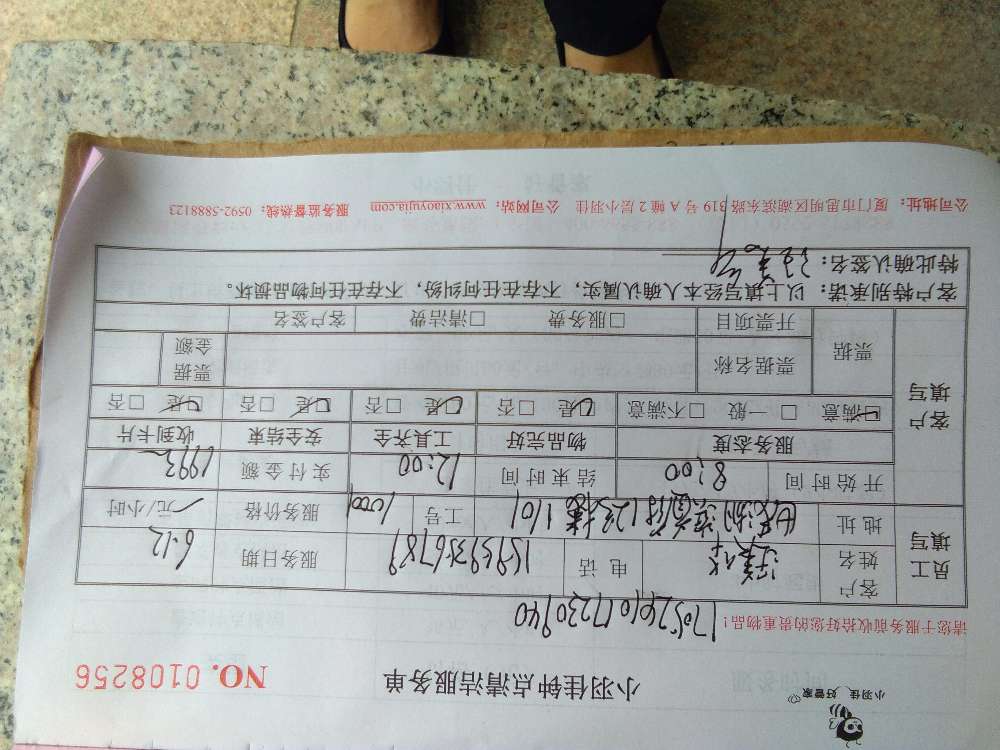 小羽佳 好管家
小羽佳钟点清洁服务单
NO. 0108256
请您于服务前收拾好您的贵重物品!
员工填写
客户姓名 电话 服务日期 6.12
地址 工号 服务价格 元/小时
开始时间 8:00 结束时间 12:00 实付金额 1993
客户填写
服务态度 物品完好 工具齐全 安全结束 收到卡片
☑满意 □一般 □不满意 ☑是 □否 ☑是 □否 ☑是 □否 ☑是 □否
票据 票据名称 票据金额
开票项目 □服务费 □清洁费 客户签名
客户特别承诺:以上填写经本人确认属实,不存在任何纠纷,不存在任何物品损坏。
特此确认签名:
公司地址:厦门市思明区湖滨东路 319 号 A 幢 2 层小羽佳 公司网站:www.xiaoyujia.com 服务监督热线:0592-5888123